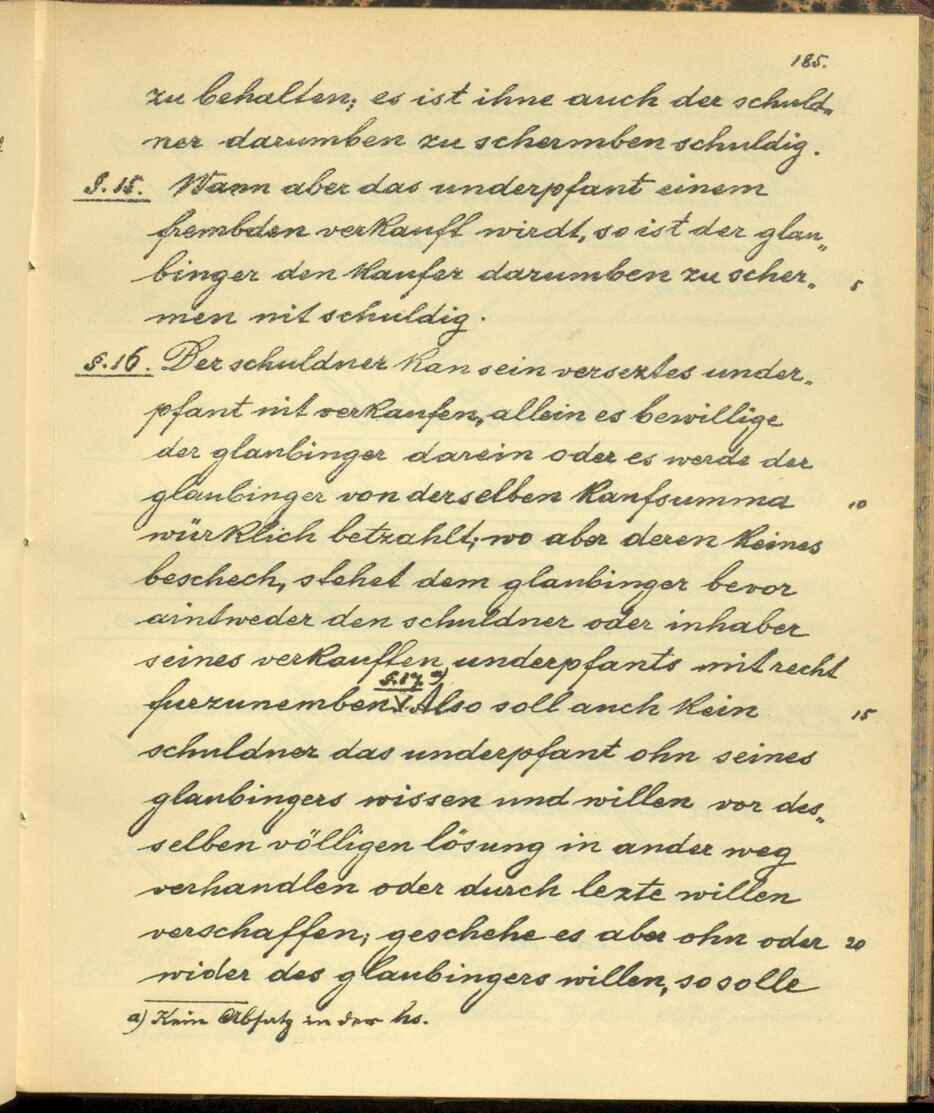 185.
zu behalten; es ist ihne auch der schuld„
ner darumben zu schermben schuldig.
§.15. Wann aber das underpfant einem
frembden verkauft wirdt, so ist der glau„
binger den kaufer darumben zu scher„ 5
men nit schuldig.
§.16. Der schuldner kan sein verseztes under„
pfant nit verkaufen, allein es bewillige
der glaubinger darein oder es werde der
glaubinger von derselben kaufsumma 10
würklich betzahlt; wo aber deren keines
beschech, stehet dem glaubinger bevor
aintweder den schuldner oder inhaber
seines verkauften underpfants mit recht
furzunemben. §.17. a) Also soll auch kein 15
schuldner das underpfant ohn seines
glaubingers wissen und willen vor des„
selben völligen lösung in ander weg
verhandlen oder durch lezte willen
verschaffen; geschehe es aber ohn oder 20
wider des glaubingers willen, so solle
a) Kein Absatz in der hs.